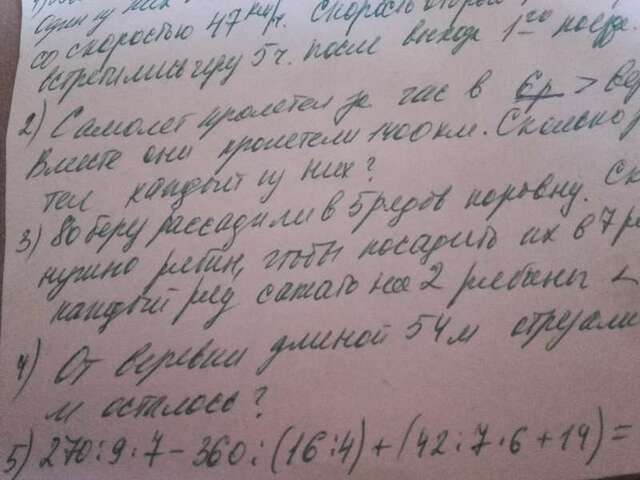 со скоростью 47 км/ч. Скорость второй
встретились через 5 ч. после выхода 1-го поезда.
2) Самолет пролетел за час в 6 р >
Вместе они пролетели 1400 км. Сколько
тел каждый из них?
3) 80 рассадили в 5 рядов поровну.
нужно рябин, чтобы посадить их в 7
каждый ряд сажать на 2 рябины <
4) От веревки длиной 54 м отрезали
м осталось?
5) 270:9·7-360:(16:4)+(42:7·6+14)=